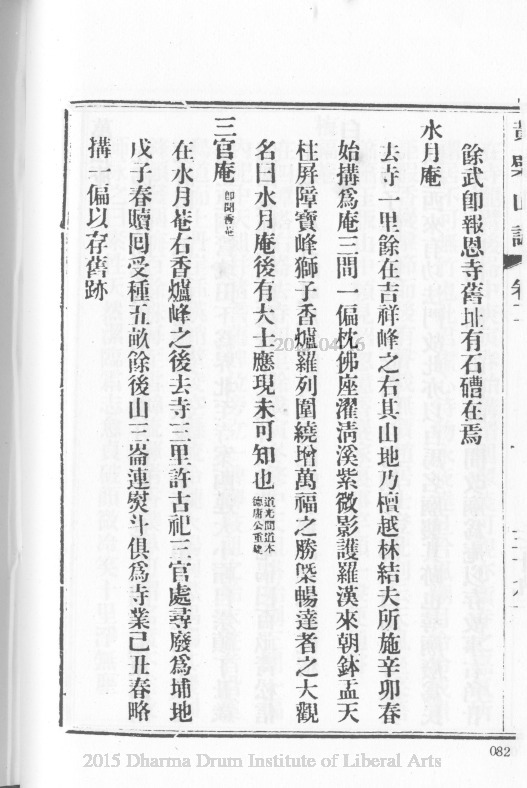 黃檗山誌 卷二
餘武卽報恩寺舊址有石磉在焉
水月庵
去寺一里餘在吉祥峰之右其山地乃檀越林結夫所施辛卯春
始搆爲庵三間一偏枕佛座濯淸溪紫微影護羅漢來朝鉢盂天
柱屏障寶峰獅子香爐羅列圍繞增萬福之勝槩暢達者之大觀
名曰水月庵後有大士應現未可知也 道光間道本
德庸公重建
三官庵 卽聞香菴
在水月菴右香爐峰之後去寺三里許古祀三官處尋廢爲埔地
戊子春贖囘受種五畝餘後山三崙連熨斗俱爲寺業己丑春略
搆一偏以存舊跡
082
2015 Dharma Drum Institute of Liberal Arts